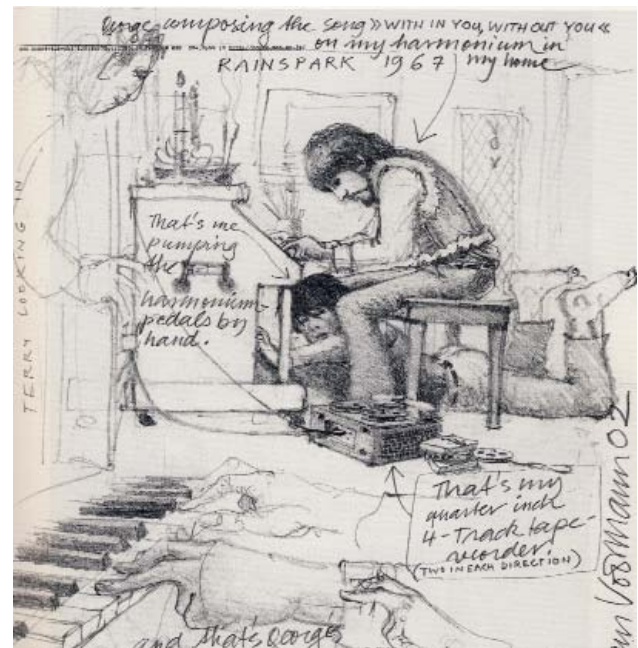 George composing the song »WITH IN YOU, WITH OUT YOU«
on my harmonium in
RAINSPARK 1967 my home
TERRY LOOKING IN
That's me
pumping
the
harmonium-
pedals by
hand.
That's my
quarter inch
4-Track tape-
recorder.
(TWO IN EACH DIRECTION)
Voormann 02
and that's George's